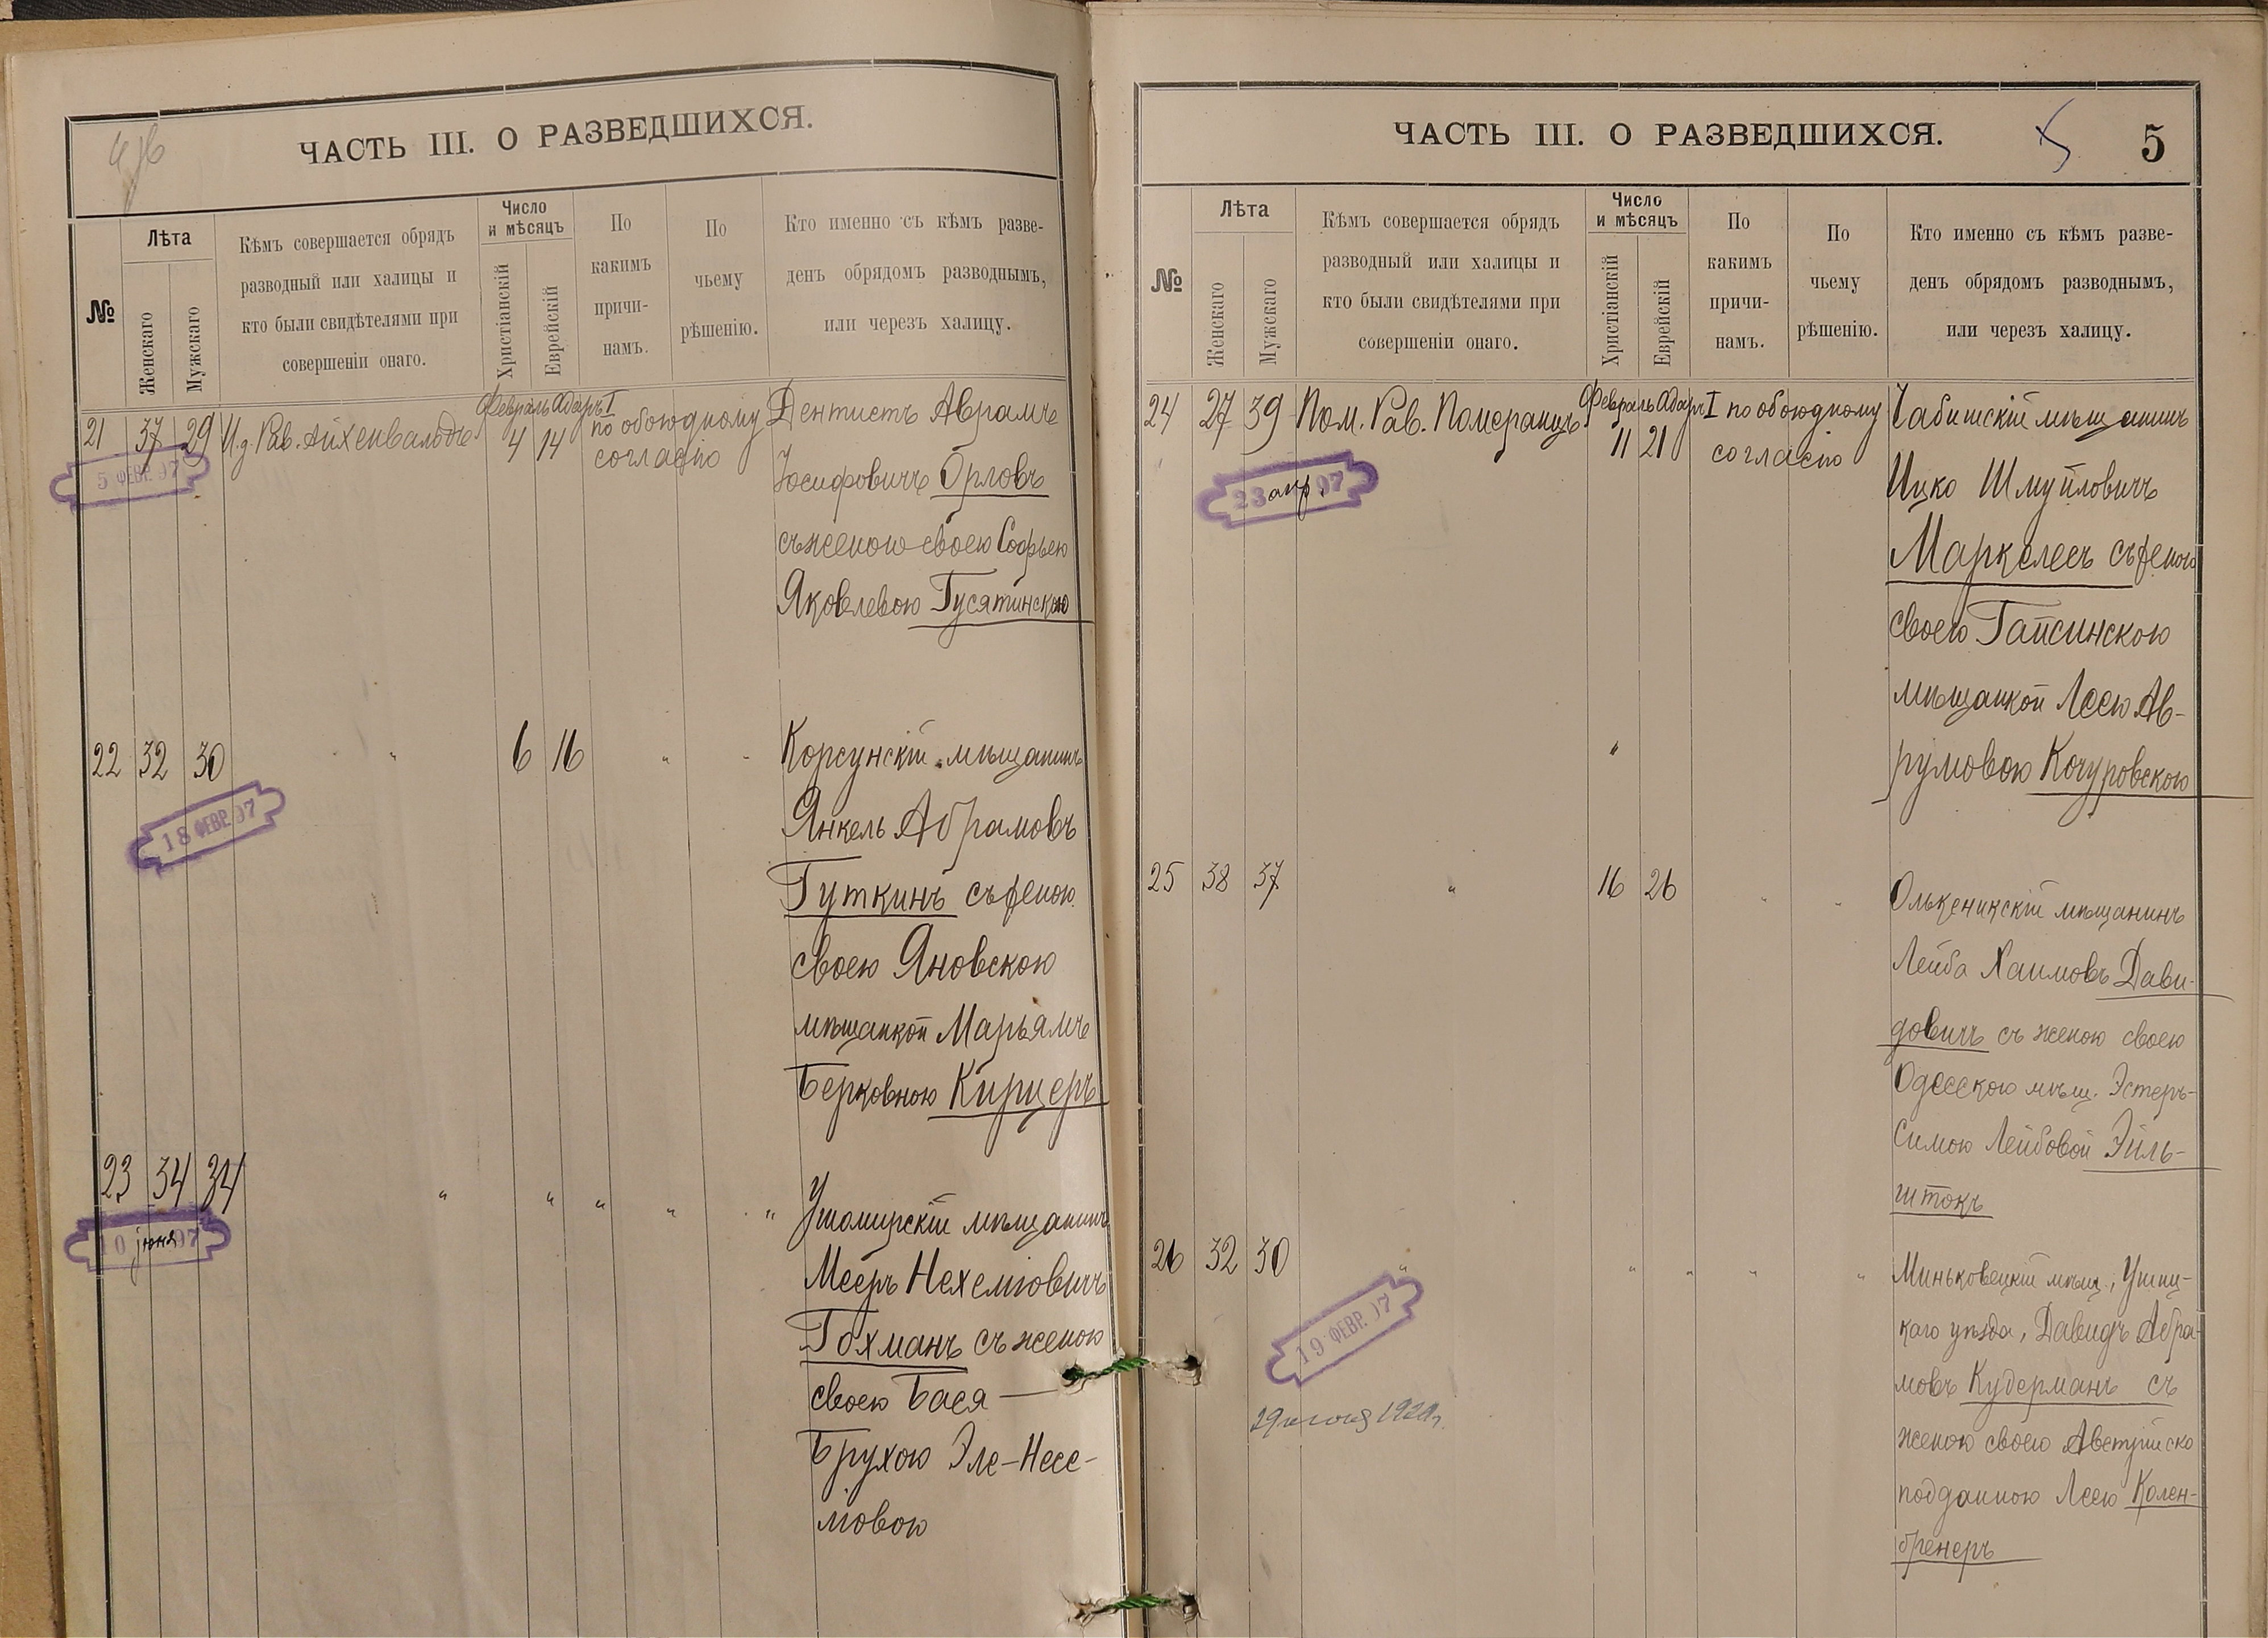 ЧАСТЬ III. О РАЗВЕДШИХСЯ.
№
Лѣта
Женскаго
Мужскаго
Кѣмъ совершается обрядъ
разводный или халицы и
кто были свидѣтелями при
совершеніи онаго.
Число
и мѣсяцъ
Христіанскій
Еврейскій
По
какимъ
причи-
намъ.
По
чьему
рѣшенію.
Кто именно съ кѣмъ разве-
денъ обрядомъ разводнымъ,
или черезъ халицу.
21 37 29 И.д. Рав. Айхенвальдъ
Февраль Адаръ I
4 14
по обоюдному
согласію
Дентистъ Аврамъ
Іосифовичъ Орловъ
съ женою своею Софьею
Яковлевою Гусятинскою
5 ФЕВР. 97
22 32 30 " 6 16 " "
Корсунскій мѣщанинъ
Янкель Абрамовъ
Гуткинъ съ женою
своею Яновскою
мѣщанкой Марьямъ
Берковною Кирцеръ
18 ФЕВР. 97
23 34 34 " " " " "
Ушомирскій мѣщанинъ
Мееръ Нехеміовичъ
Гохманъ съ женою
своею Бася —
Брухою Эле-Несе-
мовою
10 іюня 97
ЧАСТЬ III. О РАЗВЕДШИХСЯ.
5 5
№
Лѣта
Женскаго
Мужскаго
Кѣмъ совершается обрядъ
разводный или халицы и
кто были свидѣтелями при
совершеніи онаго.
Число
и мѣсяцъ
Христіанскій
Еврейскій
По
какимъ
причи-
намъ.
По
чьему
рѣшенію.
Кто именно съ кѣмъ разве-
денъ обрядомъ разводнымъ,
или черезъ халицу.
24 27 39 Пом. Рав. Померанцъ
Февраль Адаръ I
11 21
по обоюдному
согласію
мѣщанинъ
Ицко Шмуйловичъ
Маркелесъ съ женою
своею Гайсинскою
мѣщанкой Леею Ав-
румовою Кочуровскою
23 апр. 97
25 38 37 " 16 26 " "
Олькеникскій мѣщанинъ
Лейба Хаимовъ Дави-
довичъ съ женою своею
Одесскою мѣщ. Эстеръ-
Симою Лейбовой Эйль-
штокъ
26 32 30 " " " " "
Миньковецкій мѣщ., Ушиц-
каго уѣзда, Давидъ Абра-
мовъ Кудерманъ съ
женою своею Австрійско
подданною Леею Колен-
бренеръ
19 ФЕВР. 97